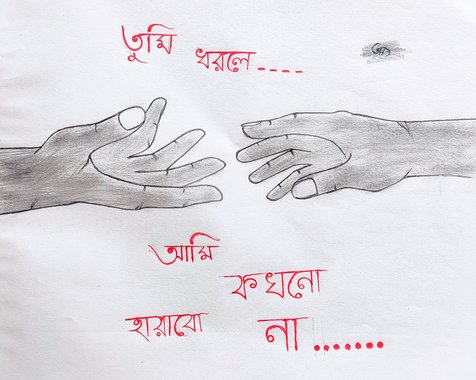 তুমি ধরলে....
আমি
কখনো
হারাবো না.......